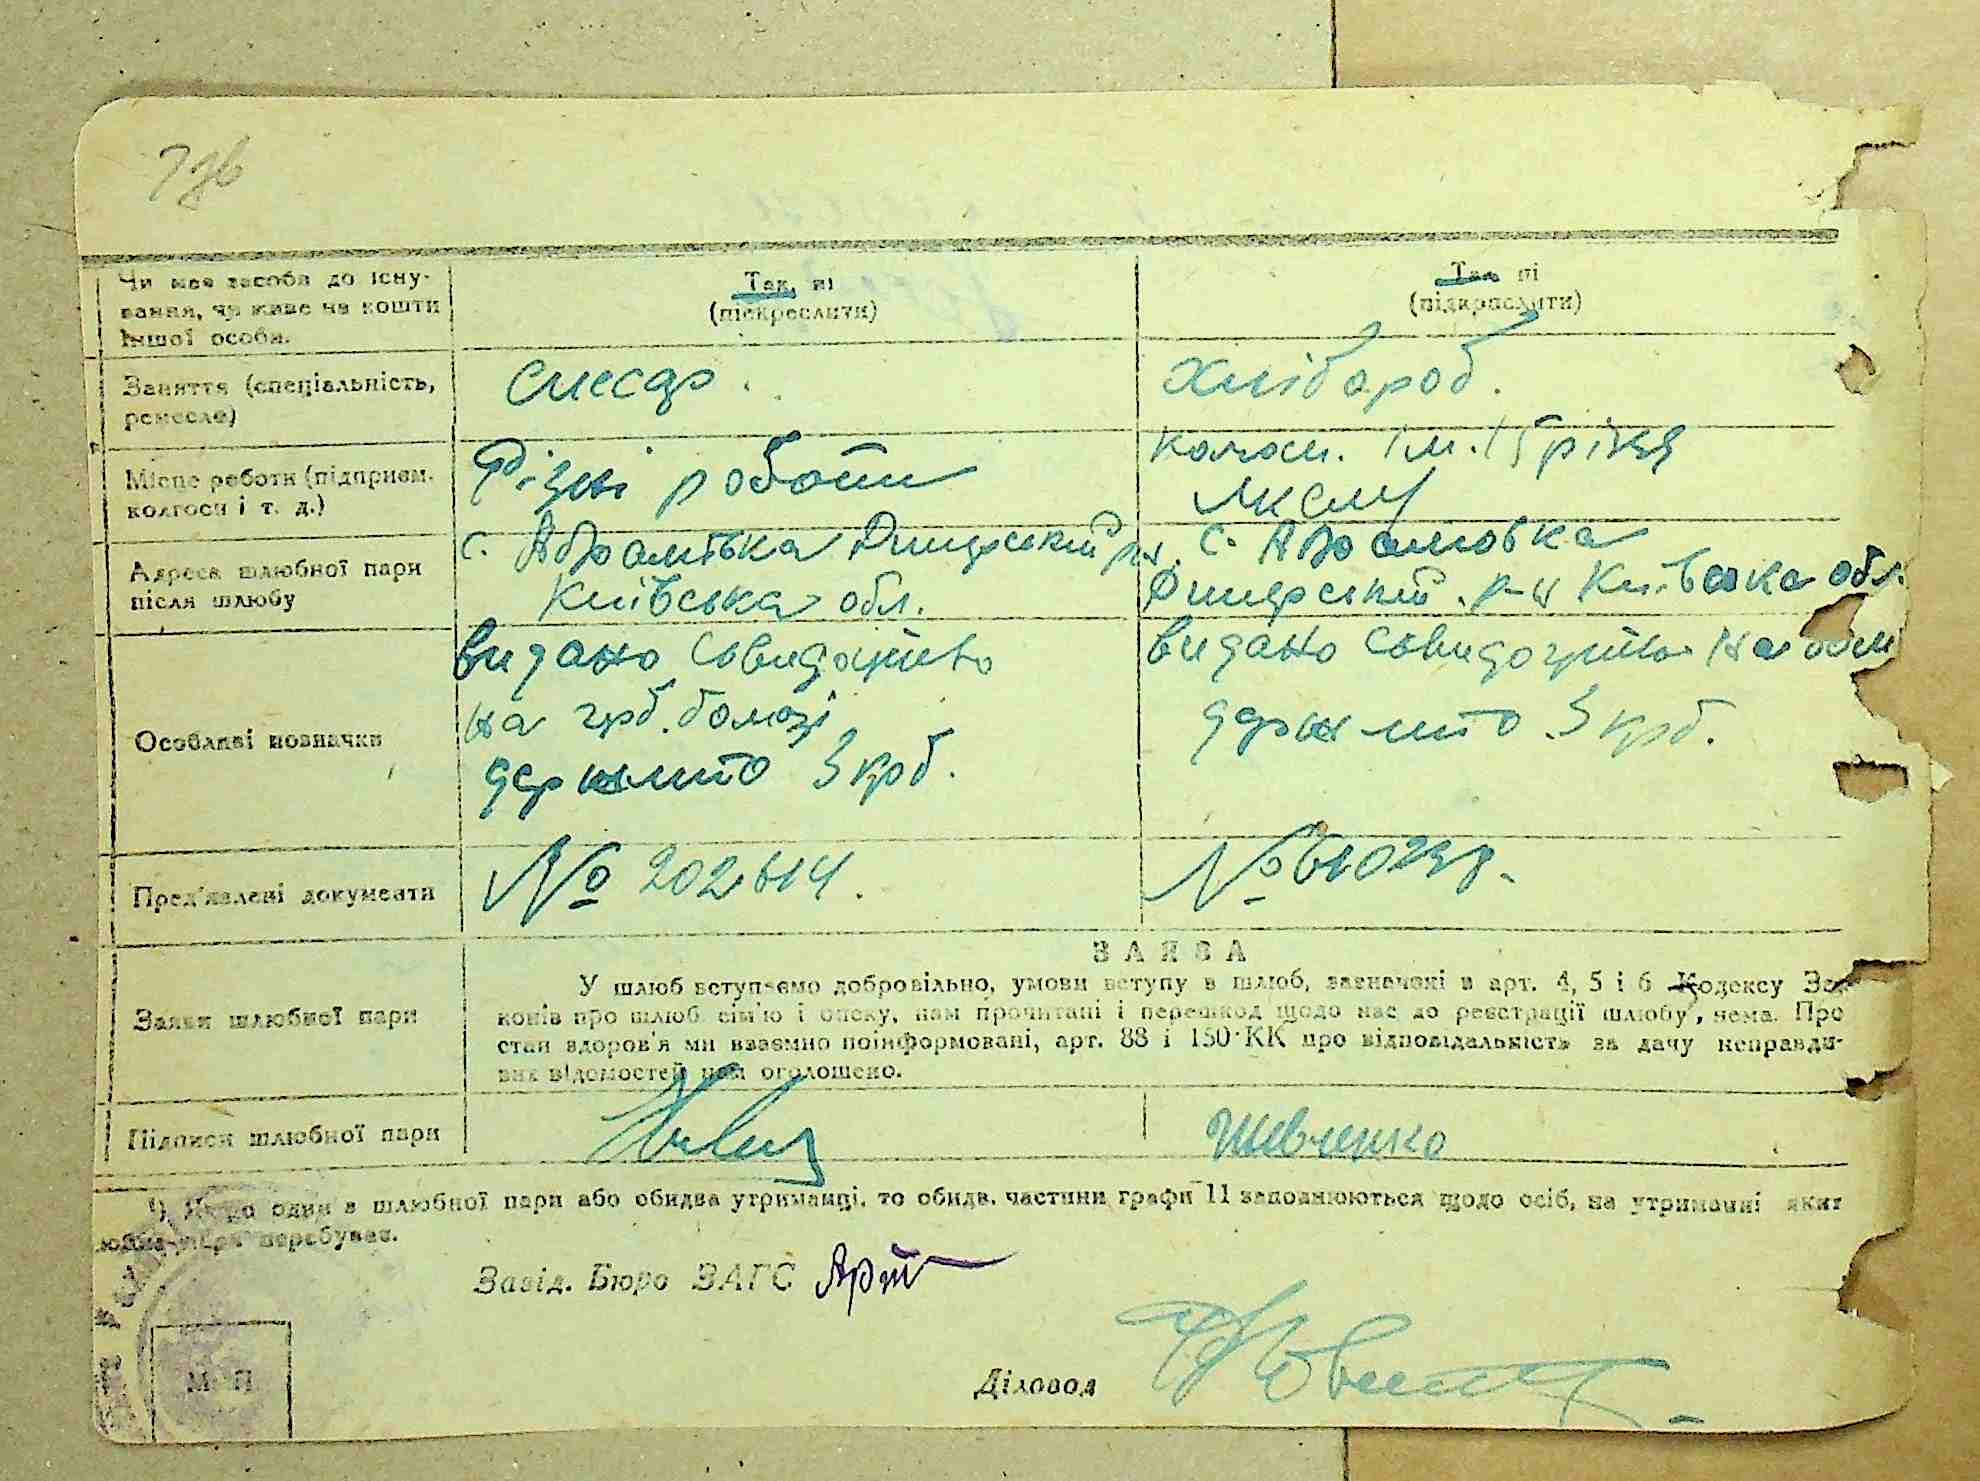 Чи має засоби до існу-
вання, чи живе на кошти
іншої особи.
Так, ні
(підкреслити)
Так, ні
(підкреслити)
Заняття (спеціальність,
ремесло)
слесар.
хлібороб.
Місце роботи (підприєм.
колгосп і т. д.)
Різні роботи
колгосп. ім. 15 річчя
ЛКСМУ
Адреса шлюбної пари
після шлюбу
с. Абрамівка Димерський р-н.
Київська обл.
с. Абрамовка
Димерський р-н Київська обл.
Особливі позначки
видано
на
держмито 3 крб.
видано на
держмито 3 крб.
Пред'явлені документи
№ 202614.
№
ЗАЯВА
Заяви шлюбної пари
У шлюб вступаємо добровільно, умови вступу в шлюб, зазначені в арт. 4, 5 і 6 Кодексу За-
конів про шлюб сім'ю і опіку, нам прочитані і перешкод щодо нас до реєстрації шлюбу, нема. Про
стан здоров'я ми взаємно поінформовані, арт. 88 і 150 КК про відповідальність за дачу неправди-
вих відомостей нам оголошено.
Підписи шлюбної пари
Шевченко
¹) Якщо один з шлюбної пари або обидва утриманці, то обидв. частини графи 11 заповнюються щодо осіб, на утриманні яких
перебуває.
Завід. Бюро ЗАГС
М П
Діловод